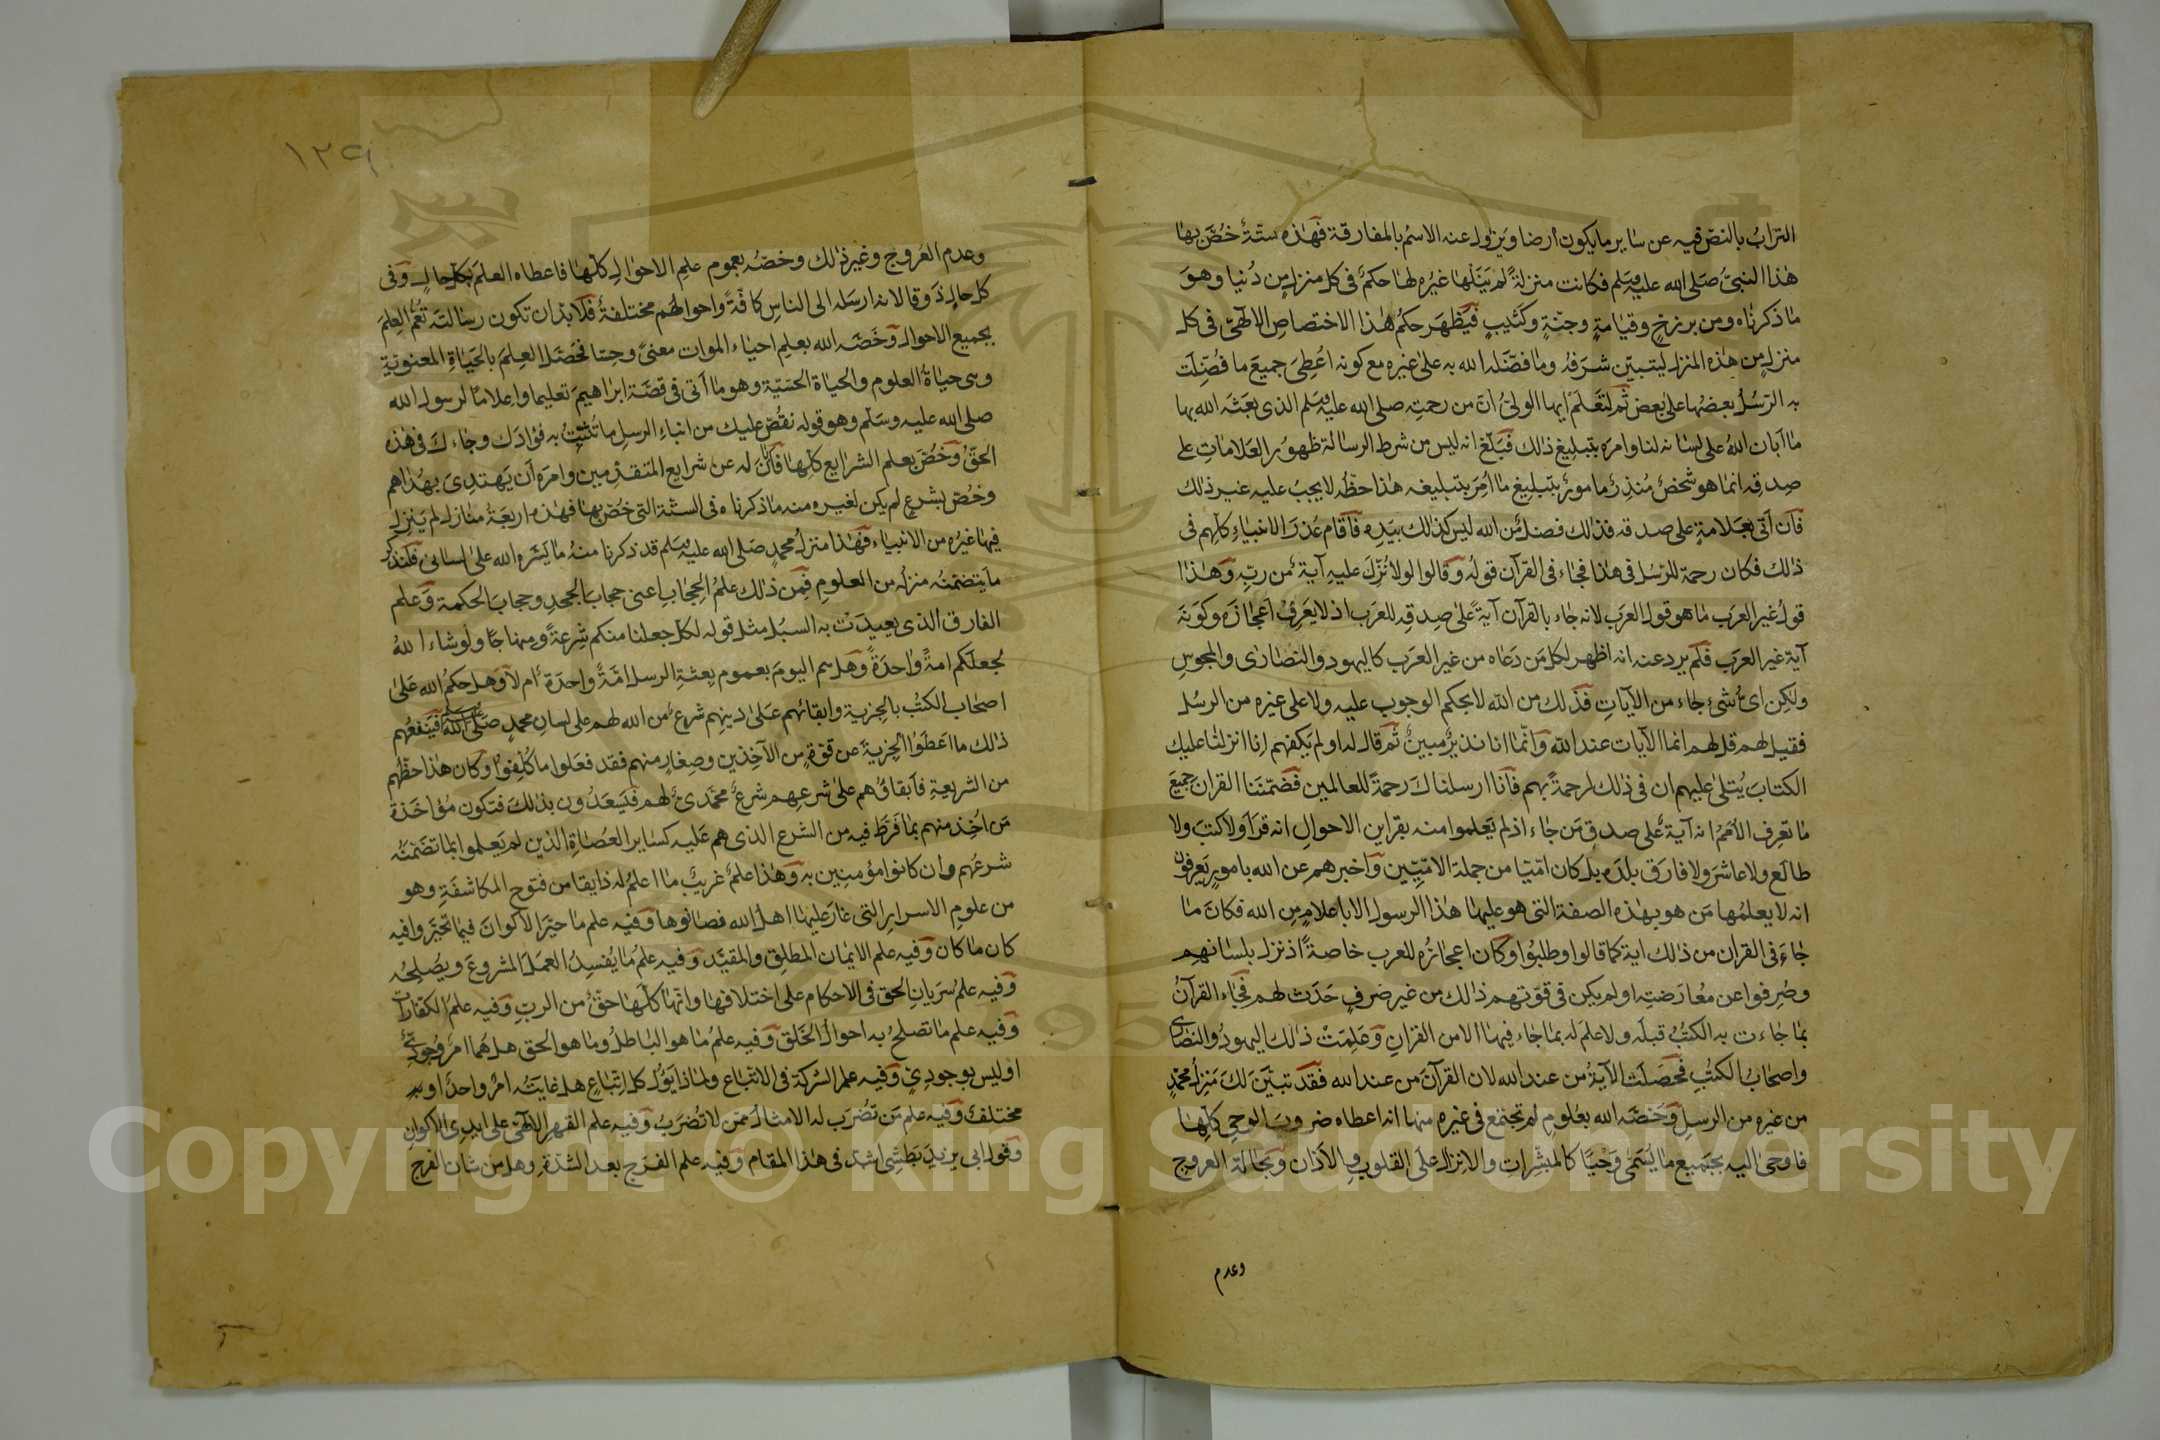 التراب بالنص فيه عن ساير ما يكون ارضا ويزول عنه الاسم بالمفارقة فهذه ستة خص بها
هذا النبي صلى الله عليه وسلم فكانت منزلة لم ينلها غيره لها حكم في كل منزل من دنيا وهو
ما ذكرناه ومن برزخ وقيامة وجنة وكثيب فيظهر حكم هذا الاختصاص الالهي في كل
منزل من هذه المنازل ليتبين شرفه وما فضله الله به على غيره مع كونه اعطى جميع ما فضلت
به الرسل بعضها على بعض ثم لتعلم ايها الولي ان من رحمته صلى الله عليه وسلم الذي بعثه الله بها
ما ابان الله على لسانه لنا وامره بتبليغ ذلك فبلغ انه ليس من شرط الرسالة ظهور العلامات على
صدقه انما هو شخص منذر مامور بتبليغ ما امر بتبليغه هذا حظه لا يجب عليه غير ذلك
فان اتى بعلامة على صدقه فذلك فضل من الله ليس كذلك بيده فاقام عذر الانبياء كلهم في
ذلك فكان رحمة للرسل في هذا فجاء في القرآن قوله وقالوا لولا نزل عليه آية من ربه وهذا
قول غير العرب ما هو قول العرب لانه جاء بالقرآن آية على صدقه للعرب اذ لا يعرف اعجازه وكونه
آية غير العرب فلم يرد عنه انه اظهر لكل من دعاه من غير العرب كاليهود والنصارى والمجوس
ولكن اى شيء جاء من الآيات فذلك من الله لا بحكم الوجوب عليه ولا على غيره من الرسل
فقيل لهم قل لهم انما الآيات عند الله وانما انا نذير مبين ثم قال له اولم يكفهم انا انزلنا عليك
الكتاب يتلى عليهم ان في ذلك لرحمة بهم فانا ارسلناك رحمة للعالمين فضمنا القران جميع
ما تعرف الامم انه آية على صدق من جاء اذ لم يعلموا منه بقراين الاحوال انه قرا ولا كتب ولا
طالع ولا عاشر ولا فارق بلده بل كان اميا من جملة الاميين واخبرهم عن الله بامور يعرفون
انه لا يعلمها من هو بهذه الصفة التي هو عليها هذا الرسول الا باعلام من الله فكان ما
جاء في القران من ذلك اية كما قالوا وطلبوا وكان اعجازه للعرب خاصة اذ نزل بلسانهم
وصرفوا عن معارضته او لم يكن في قوتهم ذلك من غير صرف حدث لهم فجاء القرآن
بما جاءت به الكتب قبله ولا علم له بما جاء فيها الا من القران وعلمت ذلك اليهود والنصارى
واصحاب الكتب فحصلت الآية من عند الله لان القرآن من عند الله فقد تبين لك منزل محمد
من غيره من الرسل وخصه الله بعلوم لم تجتمع في غيره منها انه اعطاه ضروب الوحي كلها
فاوحى اليه بجميع ما يسمى وحيا كالمبشرات والانزال على القلوب والآذان وبحالة العروج
وعدم
١٢٩
وعدم العروج وغير ذلك وخصه بعموم علم الاحوال كلها فاعطاه العلم بكل حال وفي
كل حال ذوقا لانه ارسله الى الناس كافة واحوالهم مختلفة فلا بد ان تكون رسالته تعم العلم
بجميع الاحوال وخصه الله بعلم احياء الموات معنى وحسا فحصل العلم بالحياة المعنوية
وهي حياة العلوم والحياة الحسية وهو ما اتى في قصة ابراهيم تعليما واعلاما لرسول الله
صلى الله عليه وسلم وهو قوله نقص عليك من انباء الرسل ما نثبت به فؤادك وجاءك في هذه
الحق وخص بعلم الشرايع كلها فابان له عن شرايع المتقدمين وامره ان يهتدى بهداهم
وخص بشرع لم يكن لغيره منه ما ذكرناه في الستة التي خص بها فهذه اربعة منازل لم ينزل
فيها غيره من الانبياء فهذا منزل محمد صلى الله عليه وسلم قد ذكرنا منه ما يسره الله على لساني فلنذكر
ما يتضمنه منزله من العلوم فمن ذلك علم الحجاب اعنى حجاب الجحد وحجاب الحكمة وعلم
الفارق الذي تعينت به السبل مثل قوله لكل جعلنا منكم شرعة ومنهاجا ولو شاء الله
لجعلكم امة واحدة وهل هم اليوم بعموم بعثة الرسل امة واحدة ام لا وهل حكم الله على
اصحاب الكتب بالجزية وابقائهم على دينهم شرع من الله لهم على لسان محمد صلى الله عليه وسلم فينفعهم
ذلك ما اعطوا الجزية عن قوة من الآخذين وصغار منهم فقد فعلوا ما كلفوا وكان هذا حظهم
من الشريعة فابقاؤهم على شرعهم شرع محمدي لهم فيسعدون بذلك فتكون مؤاخذة
من اخذ منهم بما فرط فيه من الشرع الذي هم عليه كساير العصاة الذين لم يعلموا بما تضمنه
شرعهم وان كانوا مؤمنين به وهذا علم غريب ما اعلم له ذايقا من فتوح المكاشفة وهو
من علوم الاسرار التي غار عليها اهل الله فصانوها وفيه علم ما حير الاكوان فيما تحيروا فيه
كان ما كان وفيه علم الايمان المطلق والمقيد وفيه علم ما يفسد العمل المشروع ويصلحه
وفيه علم سريان الحق في الاحكام على اختلافها وانها كلها حق من الرب وفيه علم الكفارات
وفيه علم ما تصلح به احوال الخلق وفيه علم ما هو الباطل وما هو الحق هل هما امر وجودي
او ليس بوجودي وفيه علم الشركة في الاتباع ولماذا يؤل كل اتباع هل غايته امر واحد او
مختلف وفيه علم من تضرب له الامثال ممن لا تضرب وفيه علم القهر الالهي على ايدي الاكوان
وقول ابي يزيد بطشي اشد في هذا المقام وفيه علم الفرج بعد الشدة وهل من شان الفرج
Copyright © King Saud University
1957